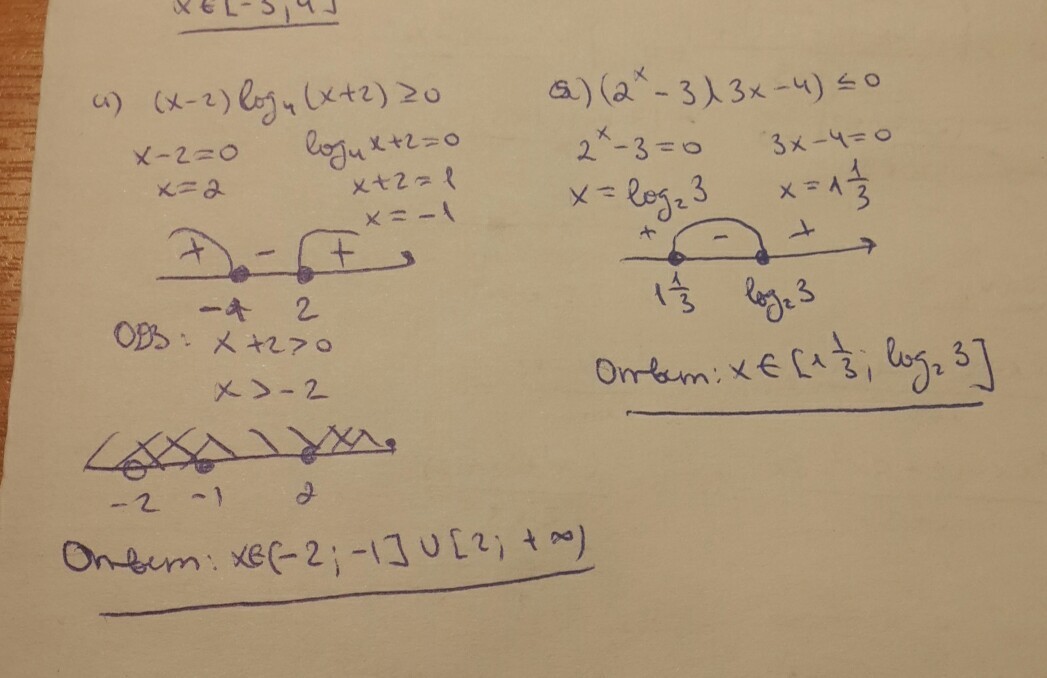 x∈[-3; 4]
4) (x-2) log₄ (x+2) ≥ 0
x-2=0 log₄ x+2=0
x=2 x+2=1
x=-1
+ - +
-1 2
ОДЗ: x+2>0
x>-2
-2 -1 2
Ответ: x∈(-2; -1] ∪ [2; +∞)
5) (2ˣ - 3)(3x-4) ≤ 0
2ˣ-3=0 3x-4=0
x=log₂3 x=1 1/3
+ - +
1 1/3 log₂3
Ответ: x∈[1 1/3; log₂3]